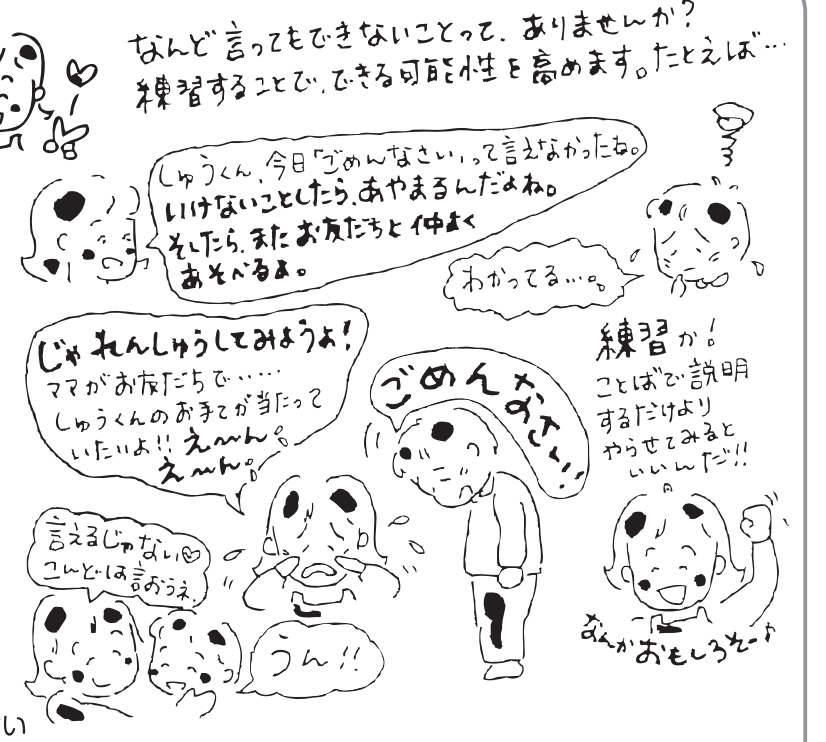 なんど言ってもできないことって、ありませんか?
練習することで、できる可能性を高めます。たとえば…
しゅうくん、今日「ごめんなさい」って言えなかったね。
いけないことしたら、あやまるんだよね。
そしたら、またお友だちと仲よく
あそべるよ。
わかってる…。
じゃれんしゅうしてみようよ!
ママがお友だちで……
しゅうくんのお手てが当たって
いたいよ!!え〜ん。
え〜ん。
ごめんなさい!!
練習か!
ことばで説明
するだけより
やらせてみると
いいんだ!!
なんかおもしろそー♪
言えるじゃない♡
こんどは言おうネ。
うん!!
い